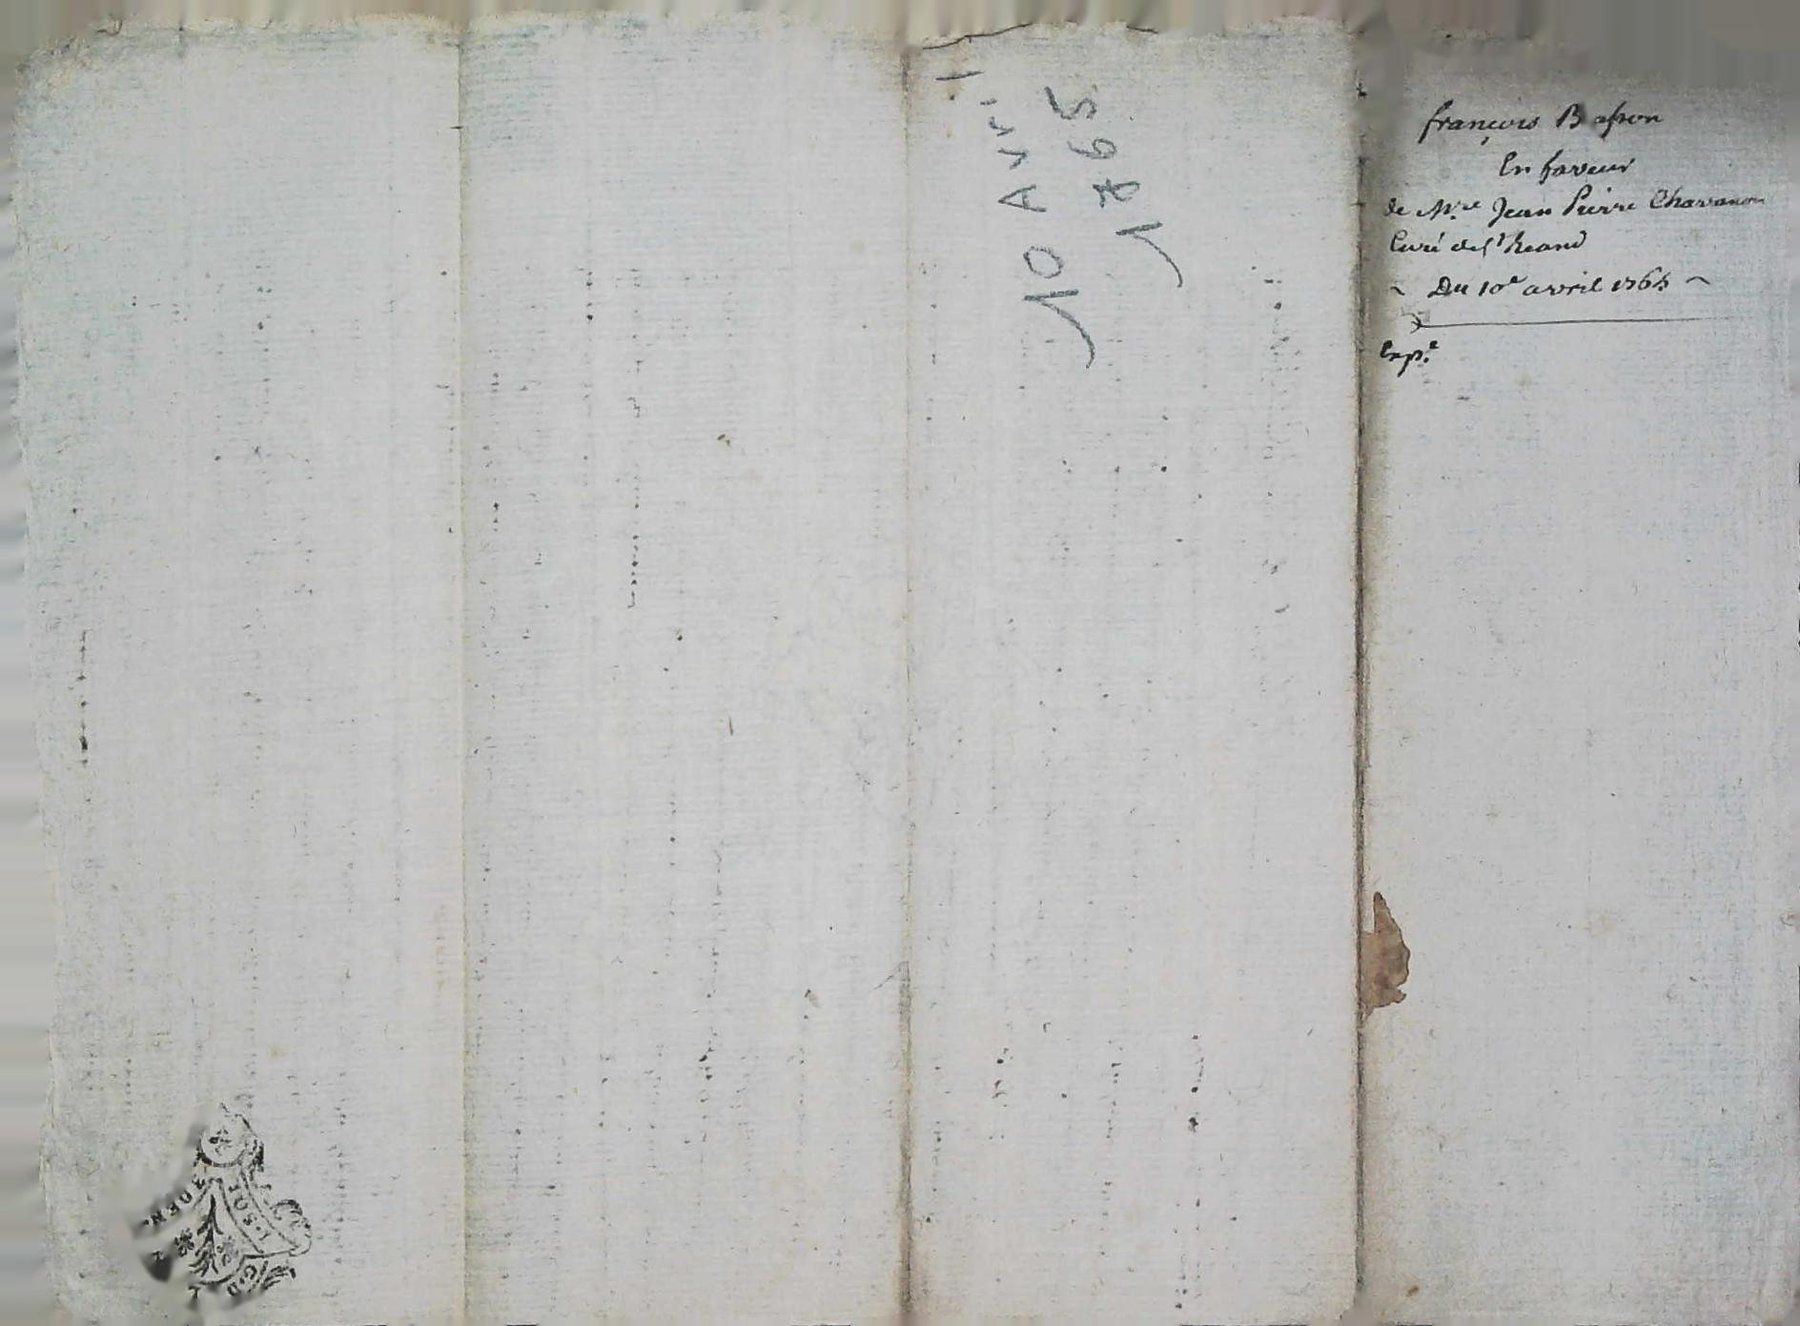 10 Avril
1765
françois Basson
En faveur
de Mre Jean Pierre Chavanon
Curé de st Reand
~ Du 10e avril 1765 ~
Expe
1·SOL